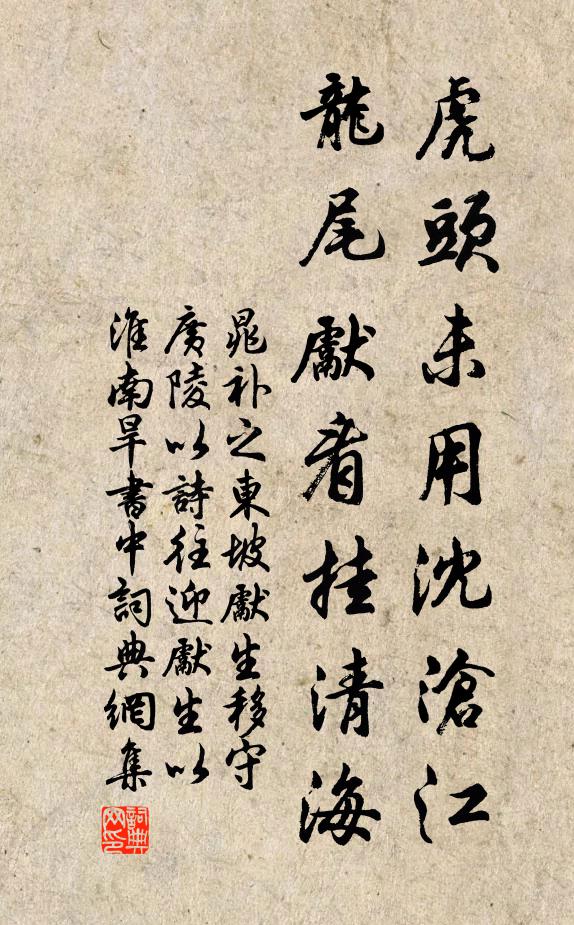 虎頭未用沈滄江
龍尾獻看挂清海
晁补之東坡獻生移守
廣陵以詩往迎獻生以
淮南旱書中詞典網集
詞典
网印